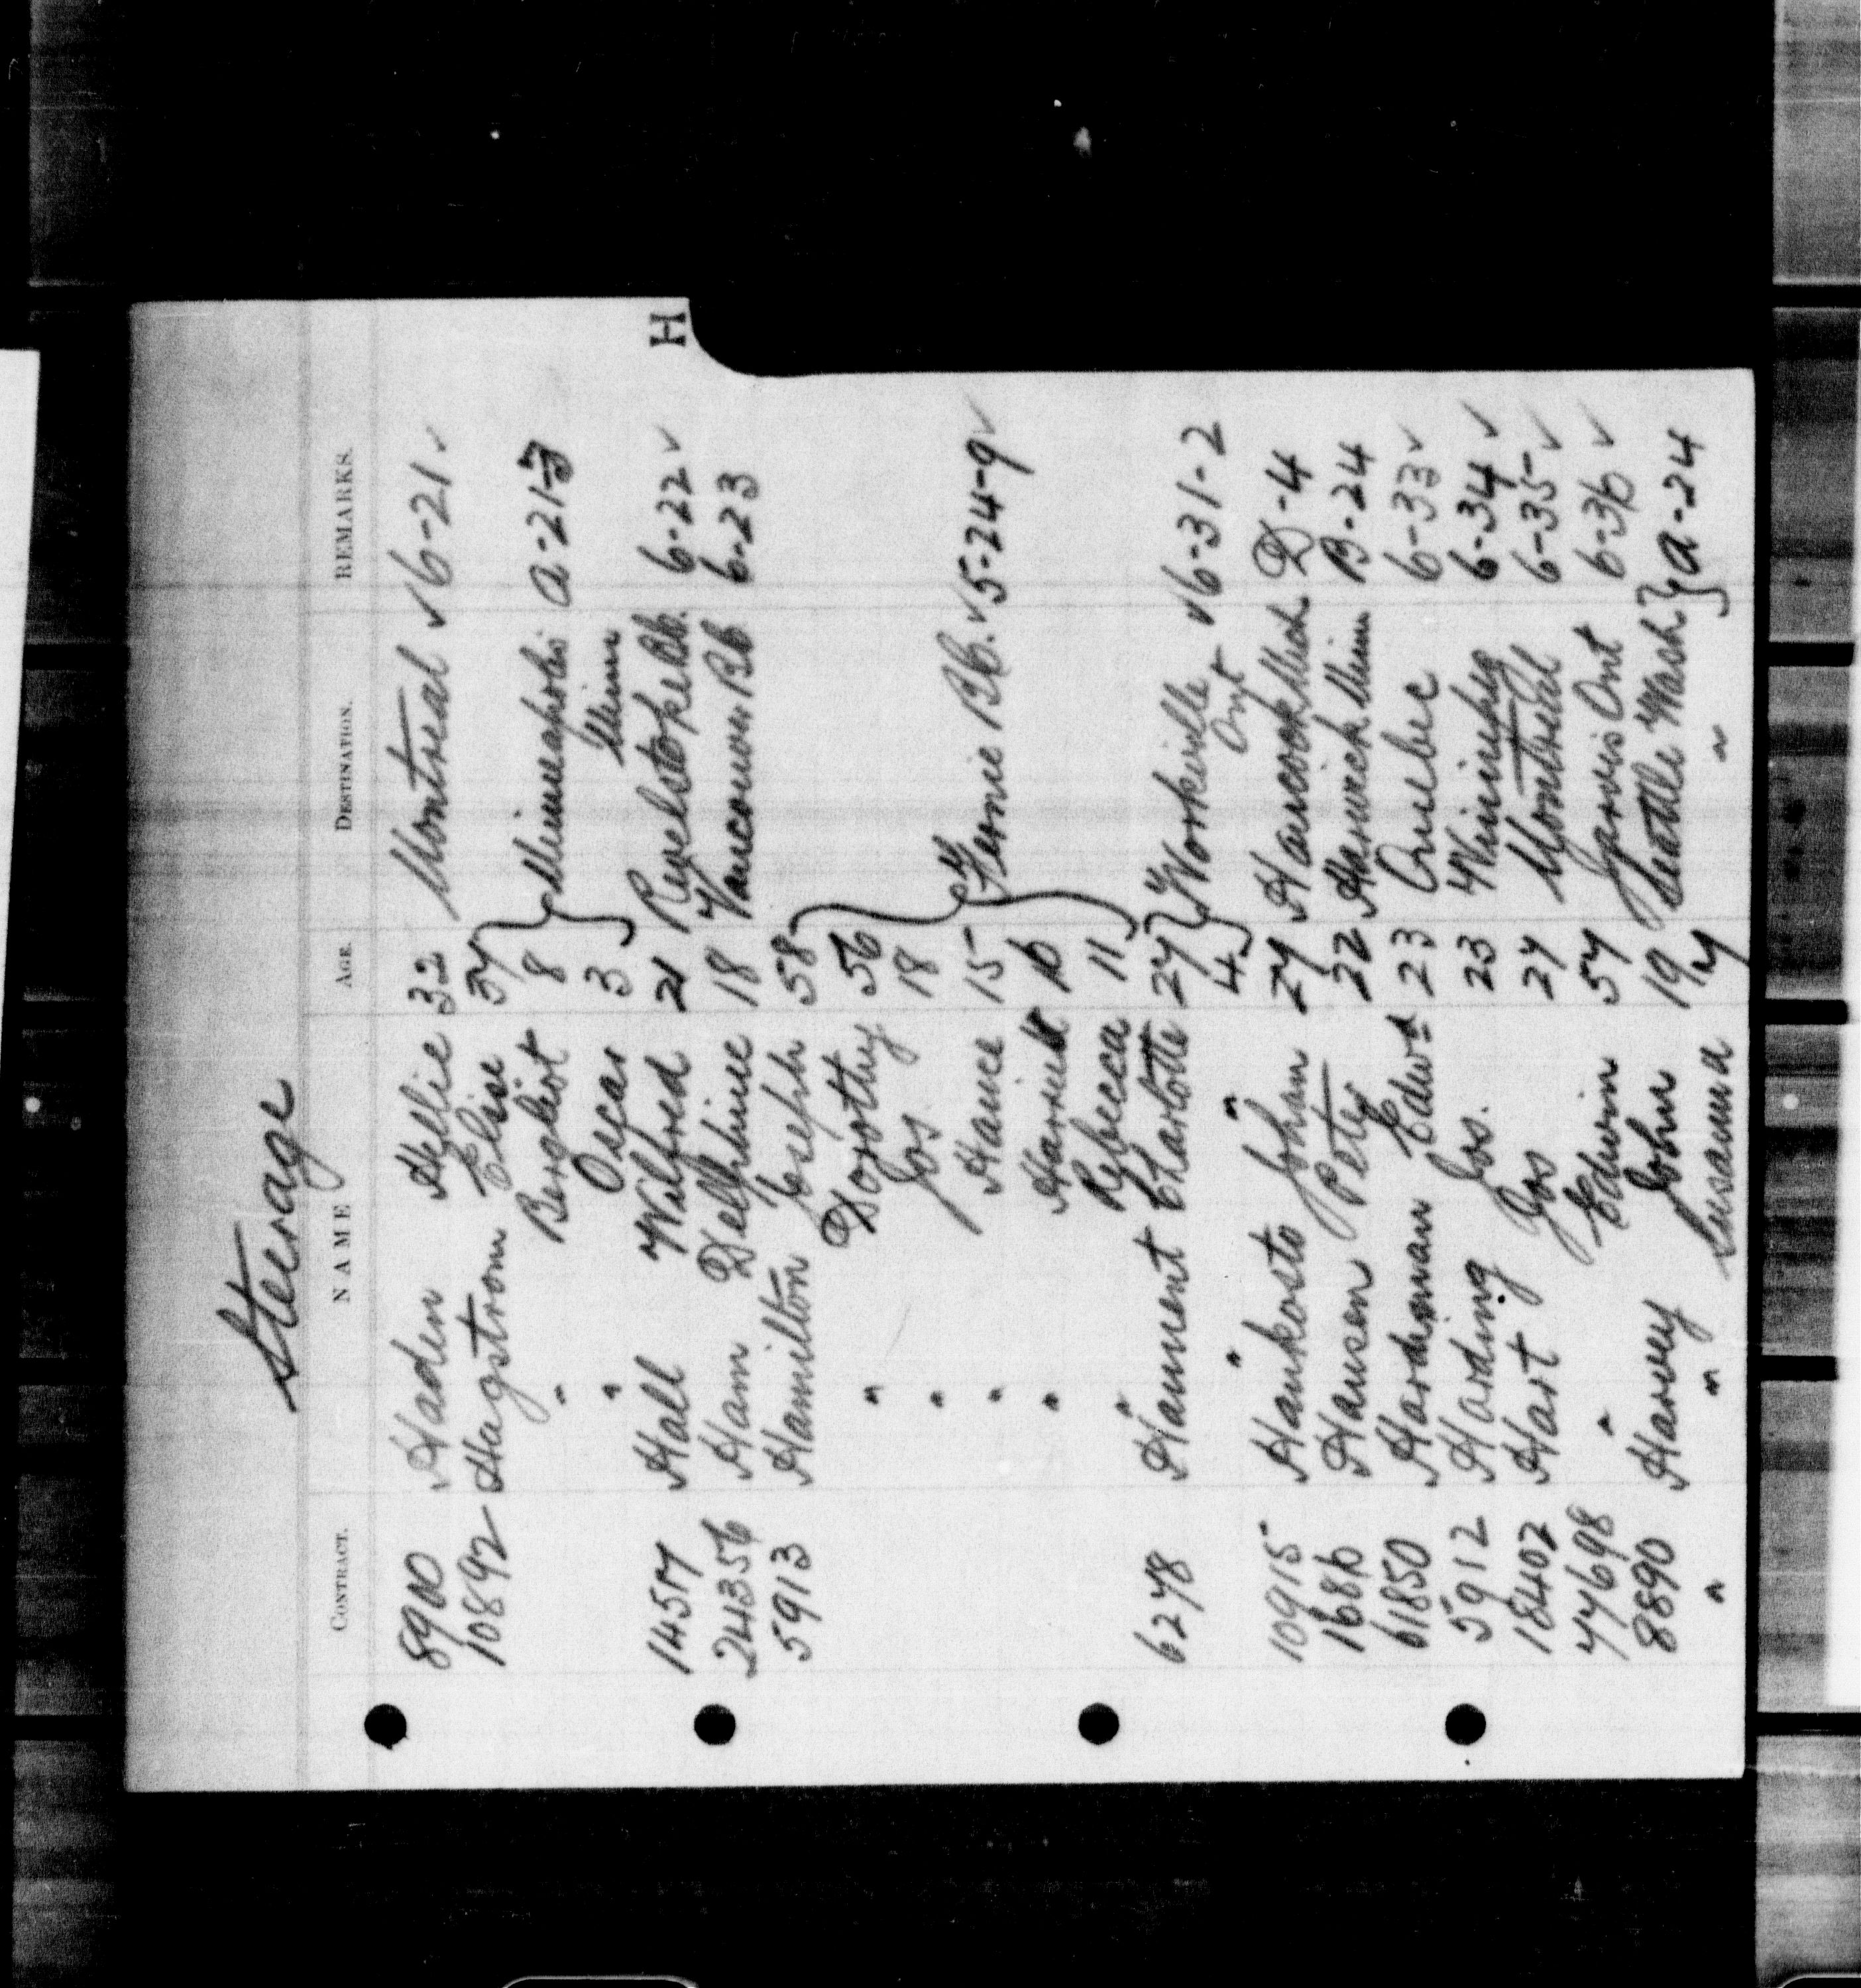 Steerage
CONTRACT. NAME AGE. DESTINATION. REMARKS.
H
8900 Haden Nellie 32 Montreal ✓ 6-21 ✓
10892 Hagstrom Elise 37
" Bergliot 8 Minneapolis A-21-3
" Oscar 3 Minn
14517 Hall Wilfred 21 Revelstoke BC. 6-22 ✓
24356 Ham Delphine 18 Vancouver BC 6-23
5913 Hamilton Joseph 58
" Dorothy 56
" Jos. 18
" Hance 15 Fernie BC. ✓ 5-24-9 ✓
" Harriett 10
" Rebecca 11
6278 Hament Charlotte 27 Workville ✓ 6-31-2
" " 4 Ont
10915 Hankosto Johan 27 Hancock Mich D-4
1686 Hansen Peter 22 Harwick Minn B-24
61850 Hardman Edwd 23 Quebec 6-33 ✓
5912 Harding Jos. 23 Winnipeg 6-34 ✓
18402 Hart Jos 27 Montreal 6-35 ✓
77698 " Edwin 57 Jarvis Ont 6-36 ✓
8890 Harvey John 19 Seattle Wash A-24
" " Susanna 17 "